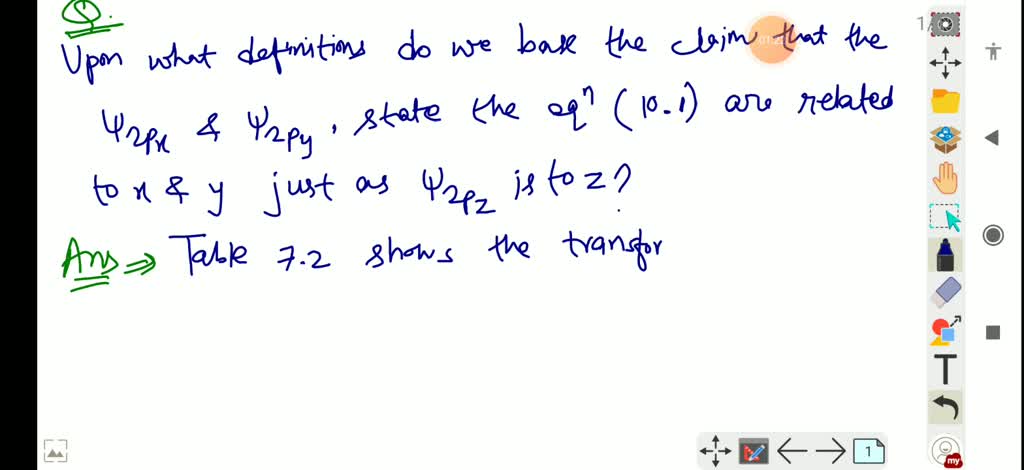 Q.
Upon what definitions do we base the claim that the
Ψ2px & Ψ2py, state the eqⁿ (10.1) are related
to x & y just as Ψ2pz is to z?
Ans ⇒ Table 7.2 shows the transfor
T
1
my